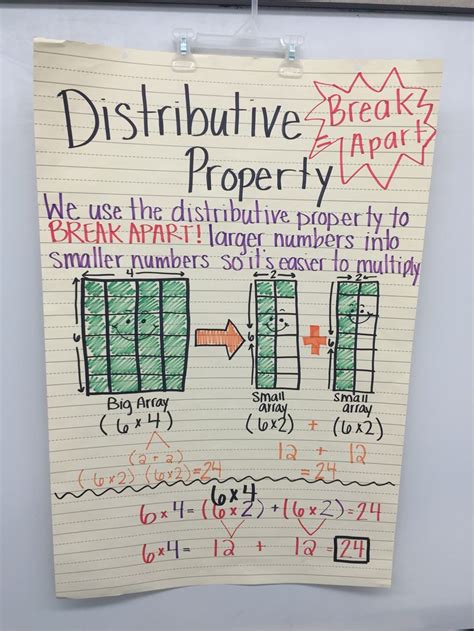 Distributive
Property
Break
Apart
We use the distributive property to
BREAK APART! larger numbers into
smaller numbers so it's easier to multiply
4
2
2
6
6
6
+
Big Array
(6x4)
Small
array
(6x2)
+
Small
array
(6x2)
(2+2)
(6x2) (6x2)=24
12 + 12
=24
6x4
6x4=(6x2)+(6x2)=24
6x4= 12 + 12 = 24